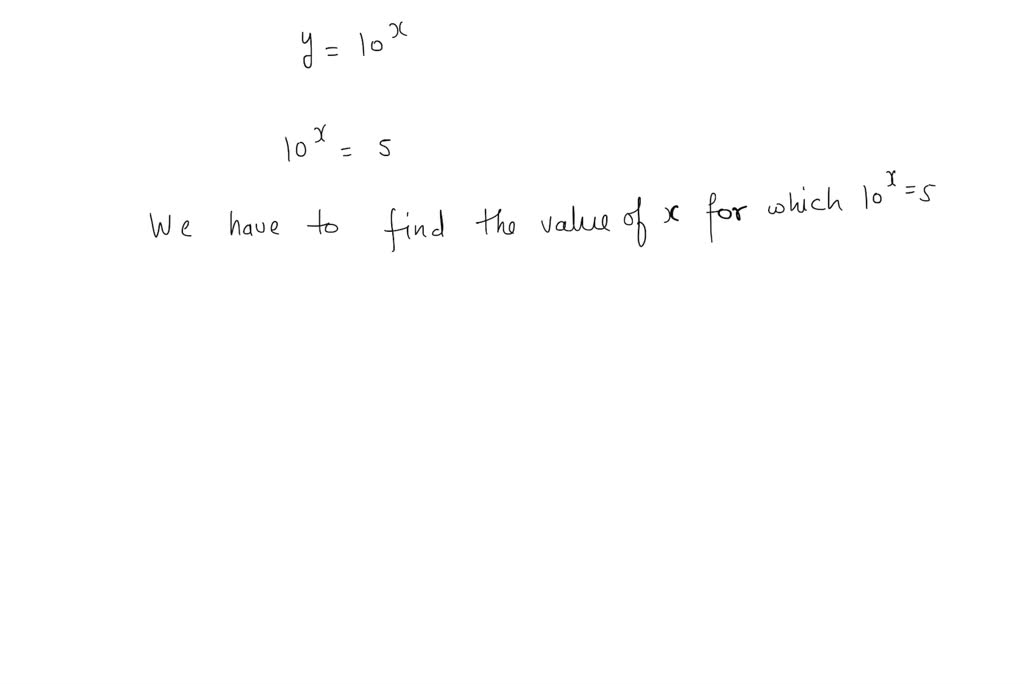 y = 10^x
10^x = 5
We have to find the value of x for which 10^x = 5